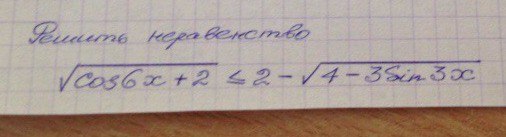 Решить неравенство
√(cos6x + 2) ≤ 2 - √(4 - 3sin3x)